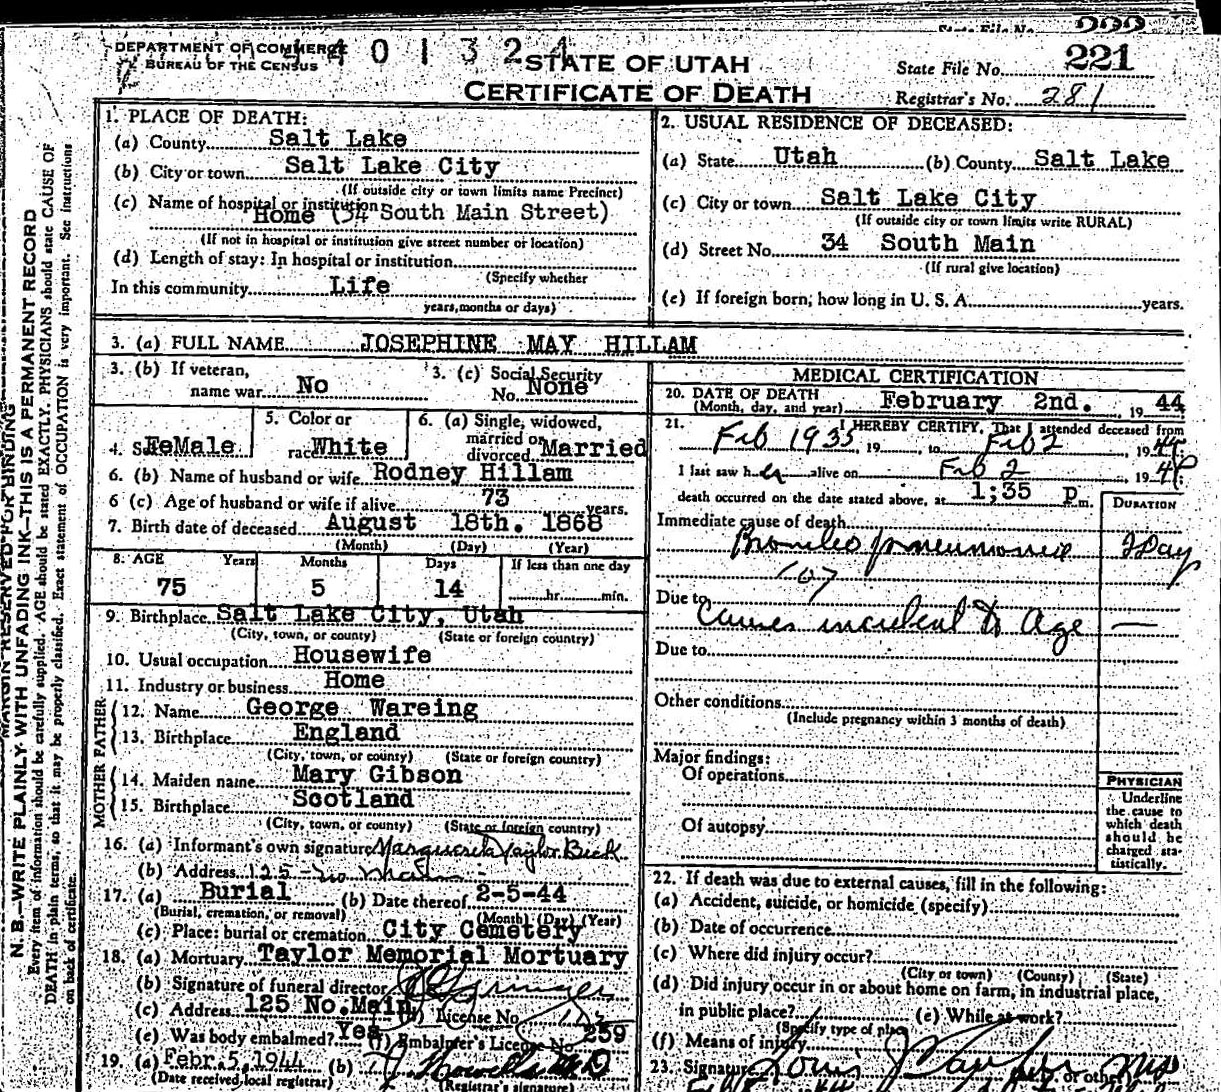 DEPARTMENT OF COMMERCE
BUREAU OF THE CENSUS
401324
STATE OF UTAH
CERTIFICATE OF DEATH
State File No. 221
Registrar's No. 281
MARGIN RESERVED FOR BINDING
N. B.—WRITE PLAINLY WITH UNFADING INK—THIS IS A PERMANENT RECORD
Every item of information should be carefully supplied. AGE should be stated EXACTLY. PHYSICIANS should state CAUSE OF
DEATH in plain terms, so that it may be properly classified. Exact statement of OCCUPATION is very important. See instructions
on back of certificate.
1. PLACE OF DEATH:
(a) County Salt Lake
(b) City or town Salt Lake City
(If outside city or town limits name Precinct)
(c) Name of hospital or institution
Home (34 South Main Street)
(If not in hospital or institution give street number or location)
(d) Length of stay: In hospital or institution
(Specify whether
In this community Life
years, months or days)
2. USUAL RESIDENCE OF DECEASED:
(a) State Utah (b) County Salt Lake
(c) City or town Salt Lake City
(If outside city or town limits write RURAL)
(d) Street No. 34 South Main
(If rural give location)
(e) If foreign born, how long in U. S. A. years.
3. (a) FULL NAME JOSEPHINE MAY HILLAM
3. (b) If veteran,
name war No
3. (c) Social Security
No. None
4. Sex FeMale
5. Color or
race White
6. (a) Single, widowed,
married or
divorced Married
6. (b) Name of husband or wife Rodney Hillam
6 (c) Age of husband or wife if alive 73 years.
7. Birth date of deceased August 18th. 1868
(Month) (Day) (Year)
8. AGE Years Months Days If less than one day
75 5 14 hr. min.
9. Birthplace Salt Lake City, Utah
(City, town, or county) (State or foreign country)
10. Usual occupation Housewife
11. Industry or business Home
FATHER
12. Name George Wareing
13. Birthplace England
(City, town, or county) (State or foreign country)
MOTHER
14. Maiden name Mary Gibson
15. Birthplace Scotland
(City, town, or county) (State or foreign country)
16. (a) Informant's own signature Marguerite Taylor Beck
(b) Address 125 - No Main
17. (a) Burial (b) Date thereof 2-5-44
(Burial, cremation, or removal) (Month) (Day) (Year)
(c) Place: burial or cremation City Cemetery
18. (a) Mortuary Taylor Memorial Mortuary
(b) Signature of funeral director
(c) Address 125 No. Main License No.
(e) Was body embalmed? Yes (f) Embalmer's License No. 259
19. (a) Febr. 5, 1944 (b)
(Date received local registrar) (Registrar's signature)
MEDICAL CERTIFICATION
20. DATE OF DEATH
(Month, day, and year) February 2nd., 1944
21. I HEREBY CERTIFY, That I attended deceased from
Feb 1935, 19 , to Feb 2, 1944.
I last saw her alive on Feb 2, 1944.
death occurred on the date stated above, at 1;35 p m.
DURATION
Immediate cause of death
Broncho pneumonia Day
107
Due to
Causes incident to Age —
Due to
Other conditions
(Include pregnancy within 3 months of death)
Major findings:
Of operations
Of autopsy
PHYSICIAN
Underline
the cause to
which death
should be
charged sta-
tistically.
22. If death was due to external causes, fill in the following:
(a) Accident, suicide, or homicide (specify)
(b) Date of occurrence
(c) Where did injury occur?
(City or town) (County) (State)
(d) Did injury occur in or about home on farm, in industrial place,
in public place? (e) While at work?
(Specify type of place)
(f) Means of injury
23. Signature Louis or other)